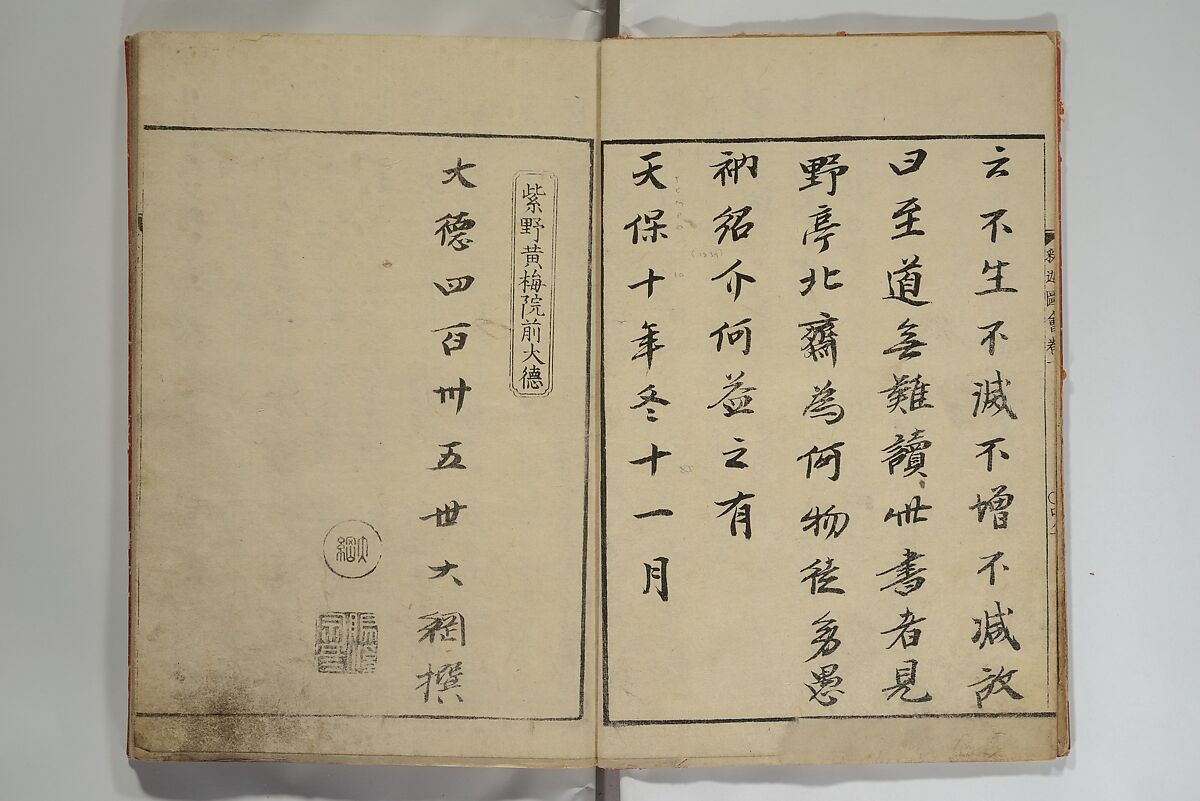 云不生不滅不増不減故
曰至道無難讀此書者見
野亭北齋為何物徒勞愚
衲紹介何益之有
天保十年冬十一月
紫野黄梅院前大德
大德四百卅五世大綱撰